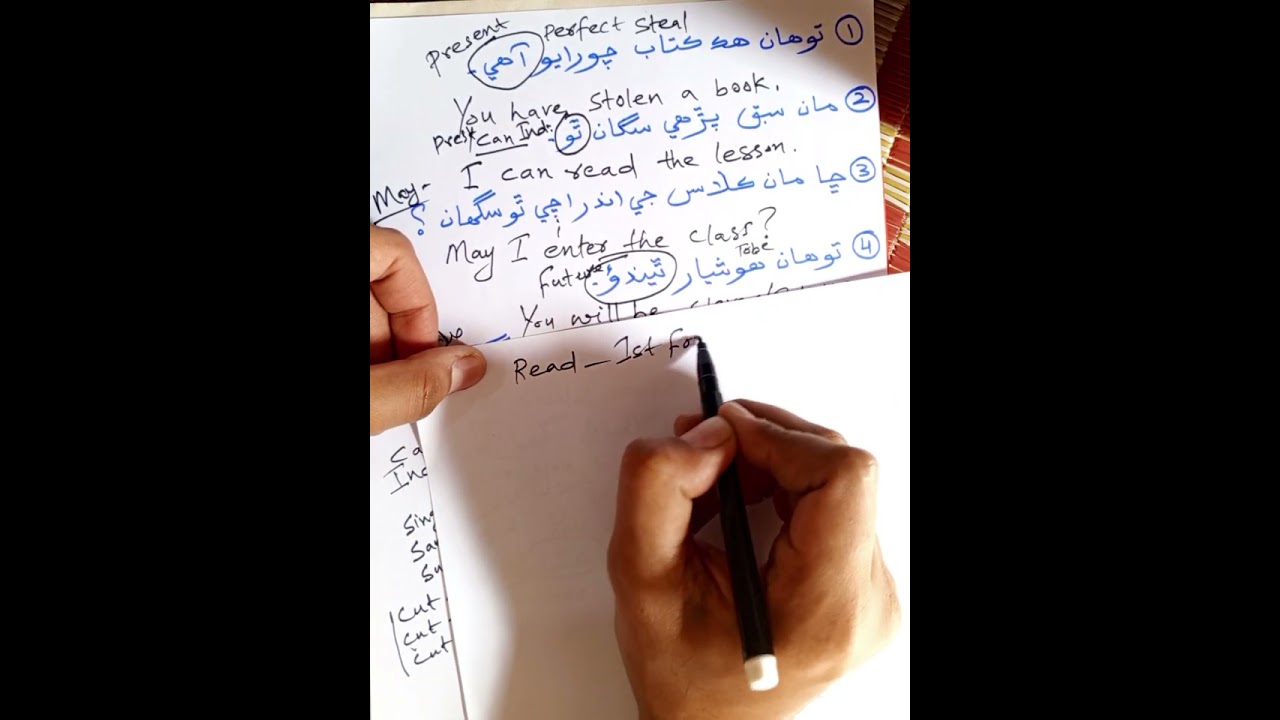 Present Perfect Steal
① توهان هڪ ڪتاب چورايو آهي.
You have stolen a book.
② مان سبق پڙهي سگان ٿو.
Pres: Can Ind:
I can read the lesson.
③ ڇا مان ڪلاس جي اندر اچي ٿو سگهان ؟
May-
May I enter the class?
④ توهان هوشيار ٿيندؤ.
Future Tobe
You will be
Read – 1st Fo
Ca
Ind
Sing
Sa
Su
cut
cut
cut